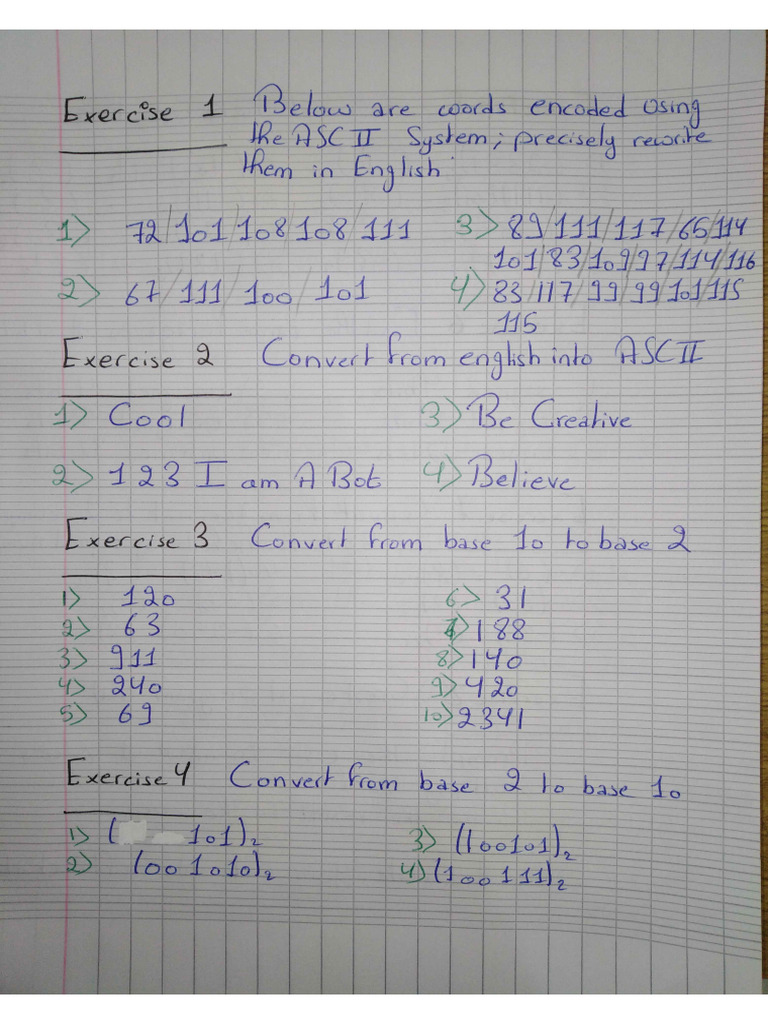 Exercise 1 Below are words encoded using
the ASCII System; precisely rewrite
them in English
1) 72/101/108/108/111
3) 89/111/117/65/114
101/83/109/97/114/116
2) 67/111/100/101
4) 83/117/99/99/101/115
115
Exercise 2 Convert from english into ASCII
1) Cool
3) Be Creative
2) 123 I am A Bot
4) Believe
Exercise 3 Convert from base 10 to base 2
1) 120
6) 31
2) 63
7) 188
3) 911
8) 140
4) 240
9) 420
5) 69
10) 2341
Exercise 4 Convert from base 2 to base 10
1) ( 101)₂
3) (100101)₂
2) (001010)₂
4) (100111)₂